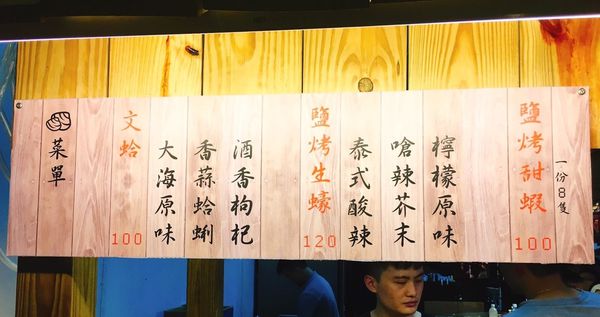 鹽烤甜蝦
一份8隻
100
檸檬原味
嗆辣芥末
泰式酸辣
鹽烤生蠔
120
酒香枸杞
香蒜蛤蜊
大海原味
文蛤
100
菜單